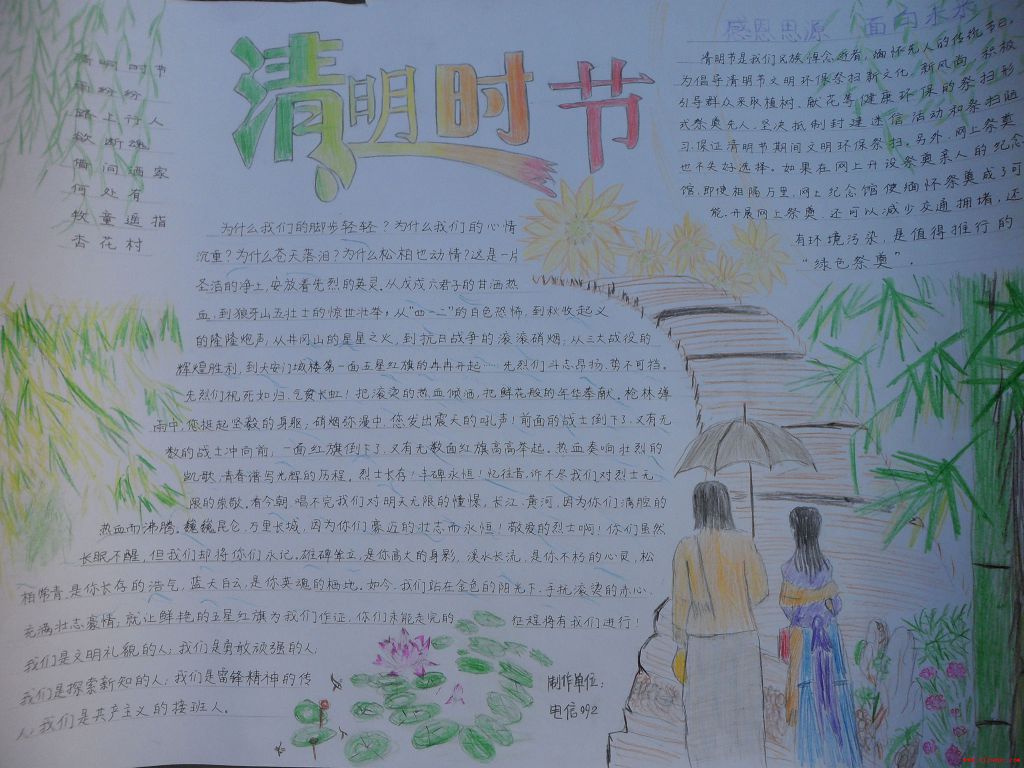 清明时节
清明时节
雨纷纷
路上行人
欲断魂
借问酒家
何处有
牧童遥指
杏花村
感恩思源 面向未来
清明节是我们民族悼念逝者,缅怀先人的传统节日,
为倡导清明节文明环保祭扫新文化,新风尚,积极
引导群众采取植树、献花等健康环保的祭扫形
式祭奠先人,坚决抵制封建迷信活动和祭扫陋
习,保证清明节期间文明环保祭扫。另外,网上祭奠
也不失好选择。如果在网上开设祭奠亲人的纪念
馆,即使相隔万里,网上纪念馆使缅怀祭奠成了可
能,开展网上祭奠 还可以减少交通拥堵,还
有环境污染,是值得推行的
“绿色祭奠”。
为什么我们的脚步轻轻?为什么我们的心情
沉重?为什么苍天落泪?为什么松柏也动情?这是一片
圣洁的净土,安放着先烈的英灵。从戊戌六君子的甘洒热
血,到狼牙山五壮士的惊世壮举,从“四一二”的白色恐怖,到秋收起义
的隆隆炮声,从井冈山的星星之火,到抗日战争的滚滚硝烟;从三大战役的
辉煌胜利,到天安门城楼第一面五星红旗的冉冉升起……先烈们斗志昂扬,势不可挡。
先烈们视死如归,气贯长虹!把滚烫的热血倾洒,把鲜花般的年华奉献。枪林弹
雨中,您挺起坚毅的身躯,硝烟弥漫中,您发出震天的吼声!前面的战士倒下了,又有无
数的战士冲向前,一面红旗倒下了,又有无数面红旗高高举起。热血奏响壮烈的
凯歌,青春谱写光辉的历程。烈士长存!丰碑永恒!忆往昔,诉不尽我们对烈士无
限的崇敬,看今朝,唱不完我们对明天无限的憧憬,长江、黄河,因为你们满腔的
热血而沸腾。巍巍昆仑,万里长城,因为你们豪迈的壮志而永恒!敬爱的烈士啊!你们虽然
长眠不醒,但我们却将你们永记。雄碑耸立,是你高大的身影,溪水长流,是你不朽的心灵,松
柏常青,是你长存的浩气,蓝天白云,是你英魂的栖地。如今,我们站在金色的阳光下,手扰滚烫的赤心,
充满壮志豪情,就让鲜艳的五星红旗为我们作证,你们未能走完的 征程将有我们进行!
我们是文明礼貌的人;我们是勇敢顽强的人
我们是探索新知的人;我们是雷锋精神的传
人;我们是共产主义的接班人。
制作单位:
电信092